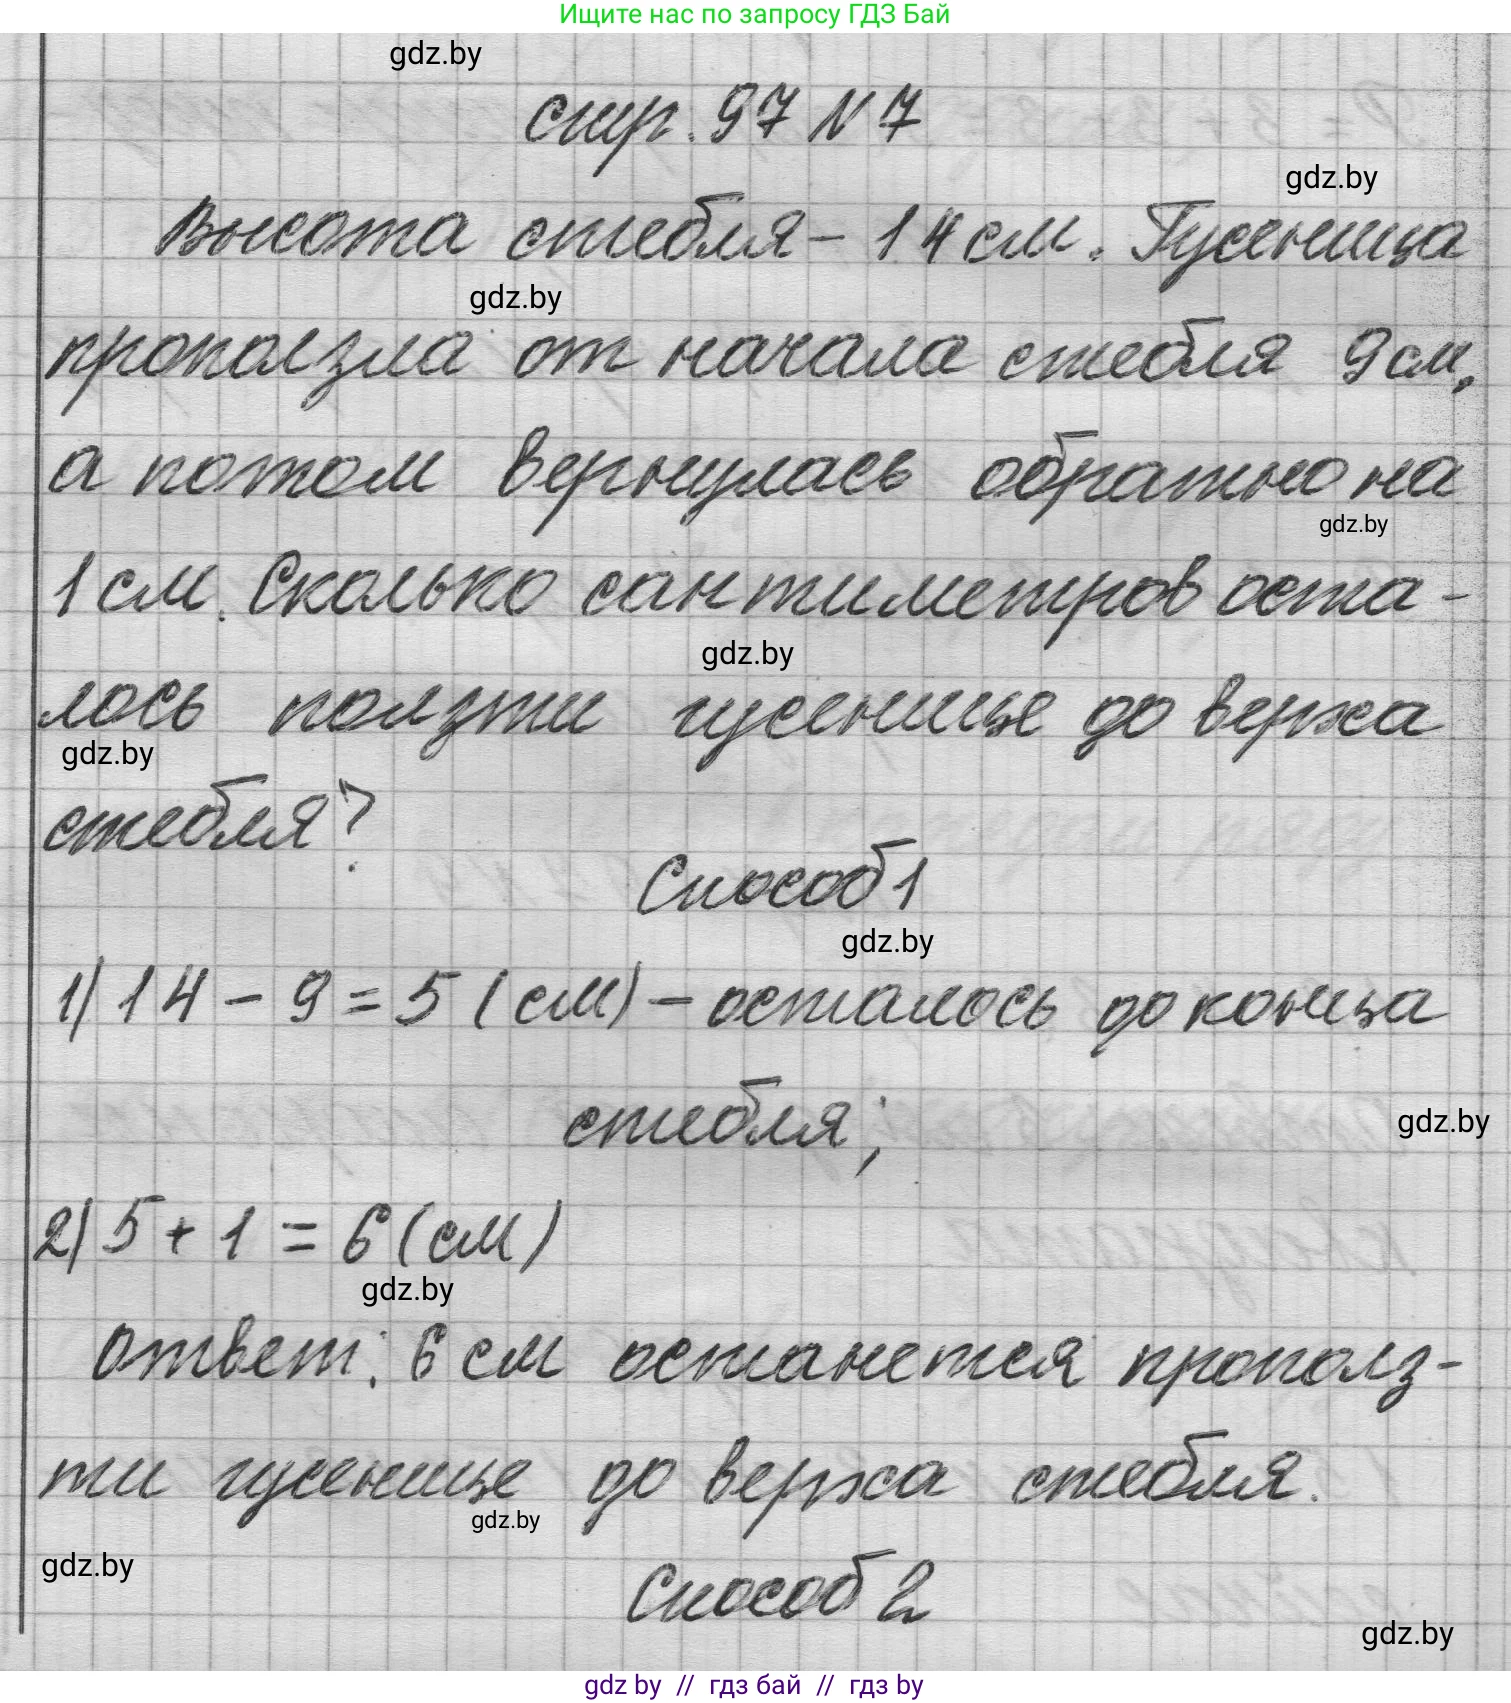 Ищите нас по запросу ГДЗ Бай
gdz.by
стр. 97 N 7
gdz.by
Высота стебля – 14 см. Гусеница
gdz.by
проползла от начала стебля 9 см,
а потом вернулась обратно на
gdz.by
1 см. Сколько сантиметров оста-
gdz.by
лось ползти гусенице до верха
gdz.by
стебля?
Способ 1
gdz.by
1) 14 – 9 = 5 (см) – осталось до конца
стебля;
gdz.by
2) 5 + 1 = 6 (см)
gdz.by
Ответ: 6 см останется прополз-
ти гусенице до верха стебля.
gdz.by
gdz.by
Способ 2
gdz.by
gdz.by // гдз бай // гдз by